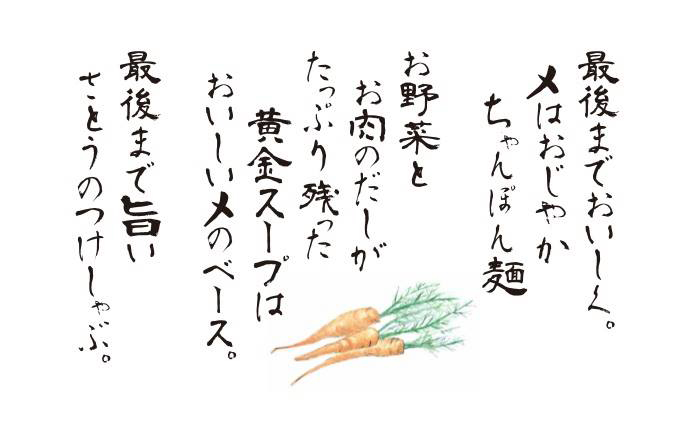 最後までおいしく。
〆はおじやか
ちゃんぽん麺
お野菜と
お肉のだしが
たっぷり残った
黄金スープは
おいしい〆のベース。
最後まで旨い
さとうのつけしゃぶ。